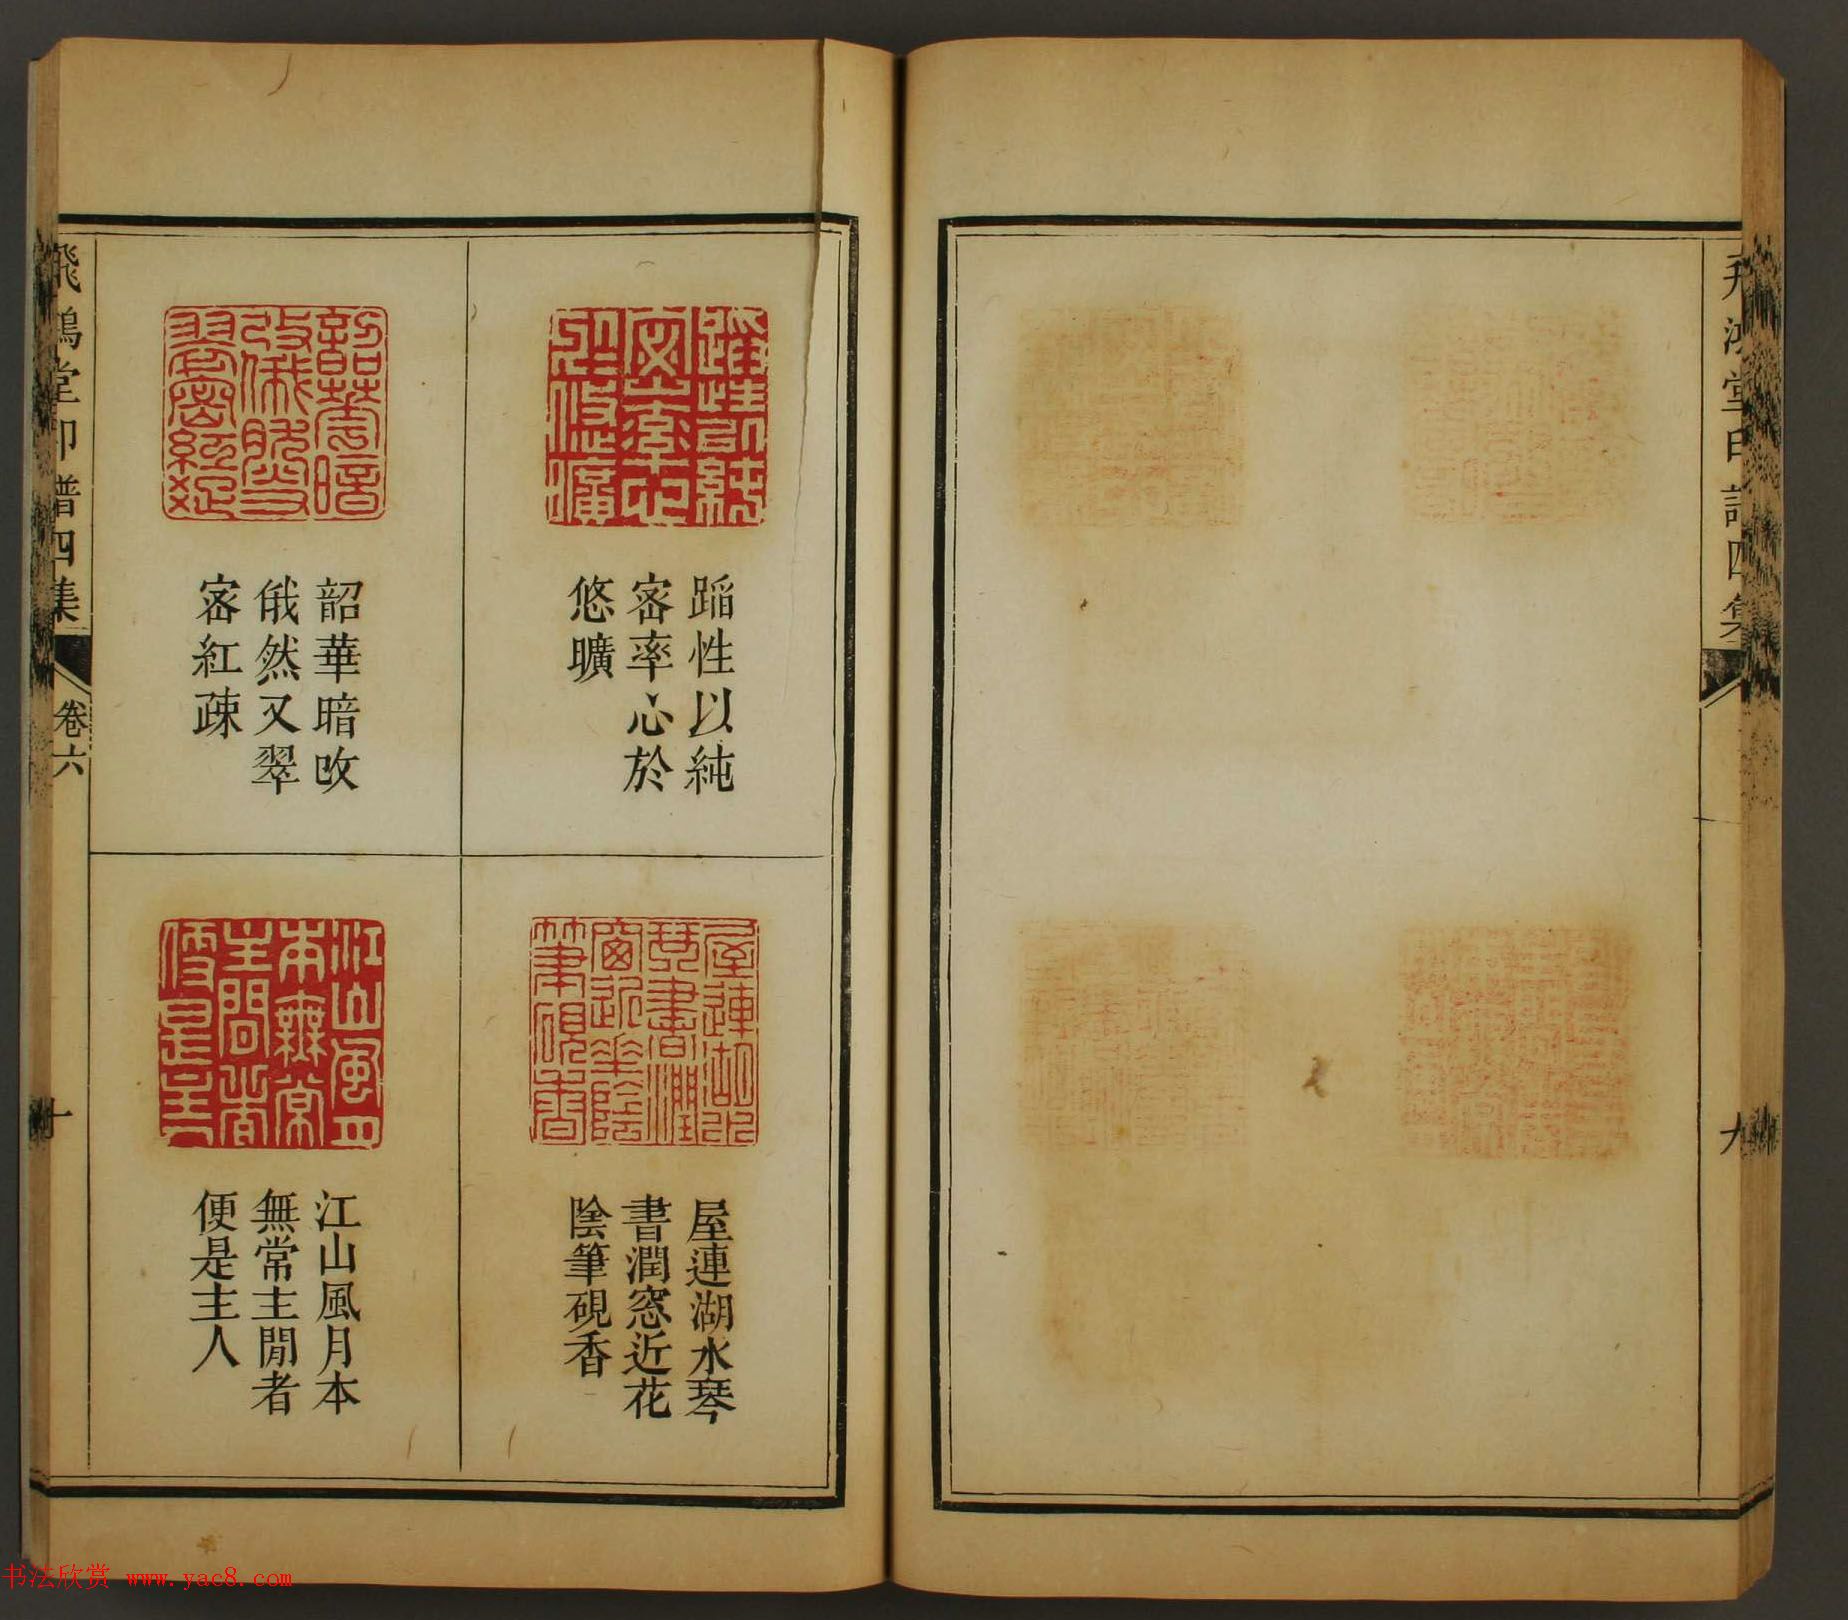 蹈性以純
宻率心於
悠曠
韶華暗改
俄然又翠
宻紅疎
屋連湖水琴
書潤窓近花
陰筆硯香
江山風月本
無常主閒者
便是主人
飛鴻堂印譜四集
卷六
十
飛鴻堂印譜四集
九
书法欣赏 www.yac8.com